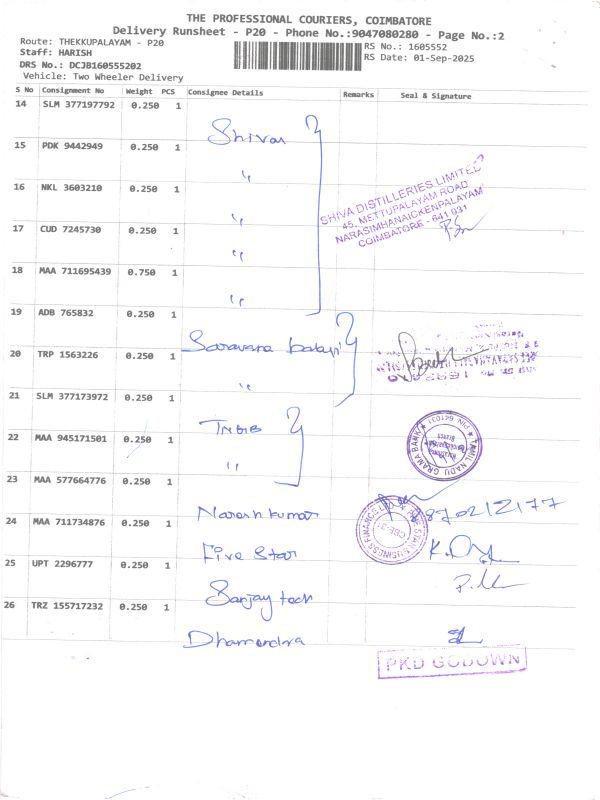 THE PROFESSIONAL COURIERS, COIMBATORE
Delivery Runsheet - P20 - Phone No.:9047080280 - Page No.:2
Route: THEKKUPALAYAM - P20
RS No.: 1605552
Staff: HARISH
RS Date: 01-Sep-2025
DRS No.: DCJB160555202
Vehicle: Two Wheeler Delivery
S No Consignment No Weight PCS Consignee Details Remarks Seal & Signature
14 SLM 377197792 0.250 1
Shiva
15 PDK 9442949 0.250 1
"
16 NKL 3603210 0.250 1
"
SHIVA DISTILLERIES LIMITED
45, METTUPALAYAM ROAD
NARASIMHANAICKENPALAYAM
COIMBATORE - 641 031
17 CUD 7245730 0.250 1
"
18 MAA 711695439 0.750 1
"
19 ADB 765832 0.250 1
Saravana balaji
20 TRP 1563226 0.250 1
"
21 SLM 377173972 0.250 1
TNGB
TAMIL NADU GRAMA BANK
PIN: 641031
22 MAA 945171501 0.250 1
"
23 MAA 577664776 0.250 1
Naresh kumar
24 MAA 711734876 0.250 1
Five Star
FIVE STAR BUSINESS FINANCE LTD
CBE-31
25 UPT 2296777 0.250 1
Sanjay tech
26 TRZ 155717232 0.250 1
Dhamendra
PKD GODOWN